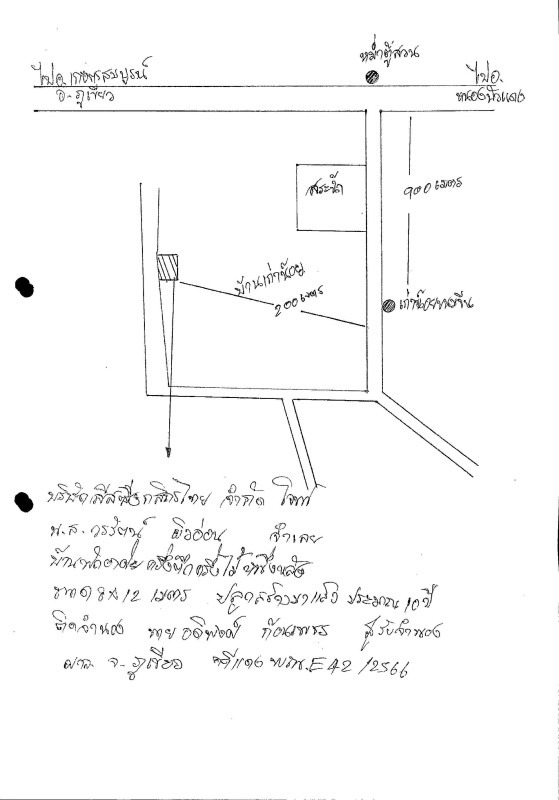 หม่ำตู้สวน
ไป อ.เกษตรสมบูรณ์
อ.ภูเขียว
ไป อ.
หนองบัวแดง
สระน้ำ
900 เมตร
บ้านเก่าน้อย
200 เมตร
เก่าน้อย
บริษัทลีสซิ่งกสิกรไทย จำกัด โจทก์
น.ส. วรรัตน์ ผิวอ่อน จำเลย
บ้านพักอาศัยครึ่งตึกครึ่งไม้
ขนาด 8x12 เมตร ปลูกสร้างมาแล้ว ประมาณ 10 ปี
ติดจำนอง นาย ผู้รับจำนอง
ศาล จ.ภูเขียว คดีแดง ผบ.E42/2566